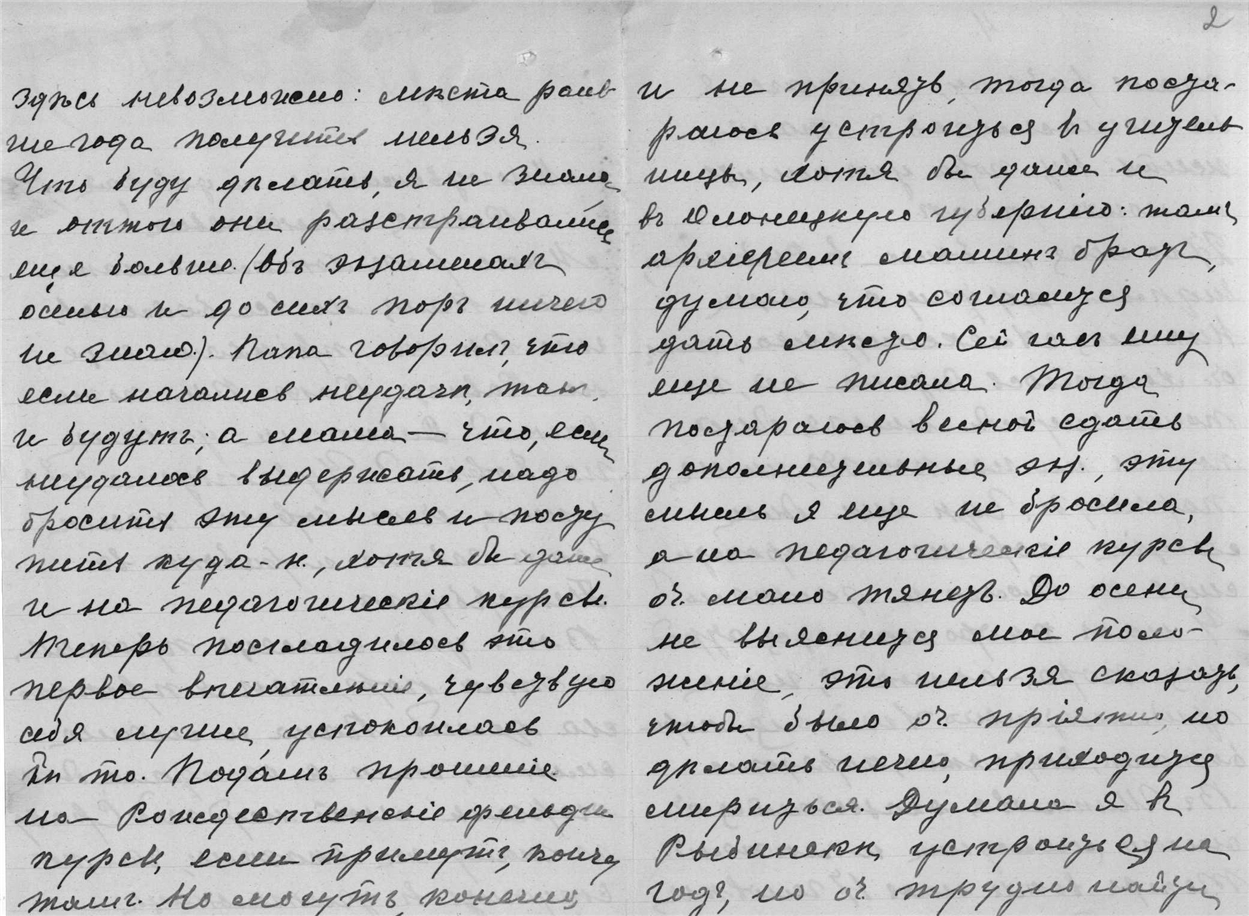 2
здѣсь невозможно: мѣста рань
ше года получить нельзя.
Что буду дѣлать, я не знала
и оттого они разстраивались
еще больше. (Объ экзаменахъ
осенью и до сихъ поръ ничего
не знаю.). Папа говорилъ, что
если начались неудачи, такъ
и будутъ; а мама — что, если
неудалось выдержать, надо
бросить эту мысль и посту
пить куда-н., хотя бы даже
и на педагогическіе курсы.
Теперь посгладилось это
первое впечатлѣніе, чувствую
себя лучше, успокоилась
то. Подамъ прошеніе
на Рождественскіе фельдш
курсы, если примутъ, кончу
тамъ. Но могутъ, конечно,
и не принять, тогда поста-
раюсь устроиться въ учитель
ницы, хотя бы даже и
въ Олонецкую губернію: тамъ
архіереемъ маминъ братъ,
думаю, что согласится
дать мѣсто. Сейчасъ ему
еще не писала. Тогда
постараюсь весной сдать
дополнительные экз., эту
мысль я еще не бросила,
а на педагогическіе курсы
оч. мало тянетъ. До осени
не выяснится мое поло-
женіе, это нельзя сказать,
чтобы было оч. пріятно, но
дѣлать нечего, приходится
мириться. Думала я въ
Рыбинскѣ устроиться на
годъ, но оч. трудно найти